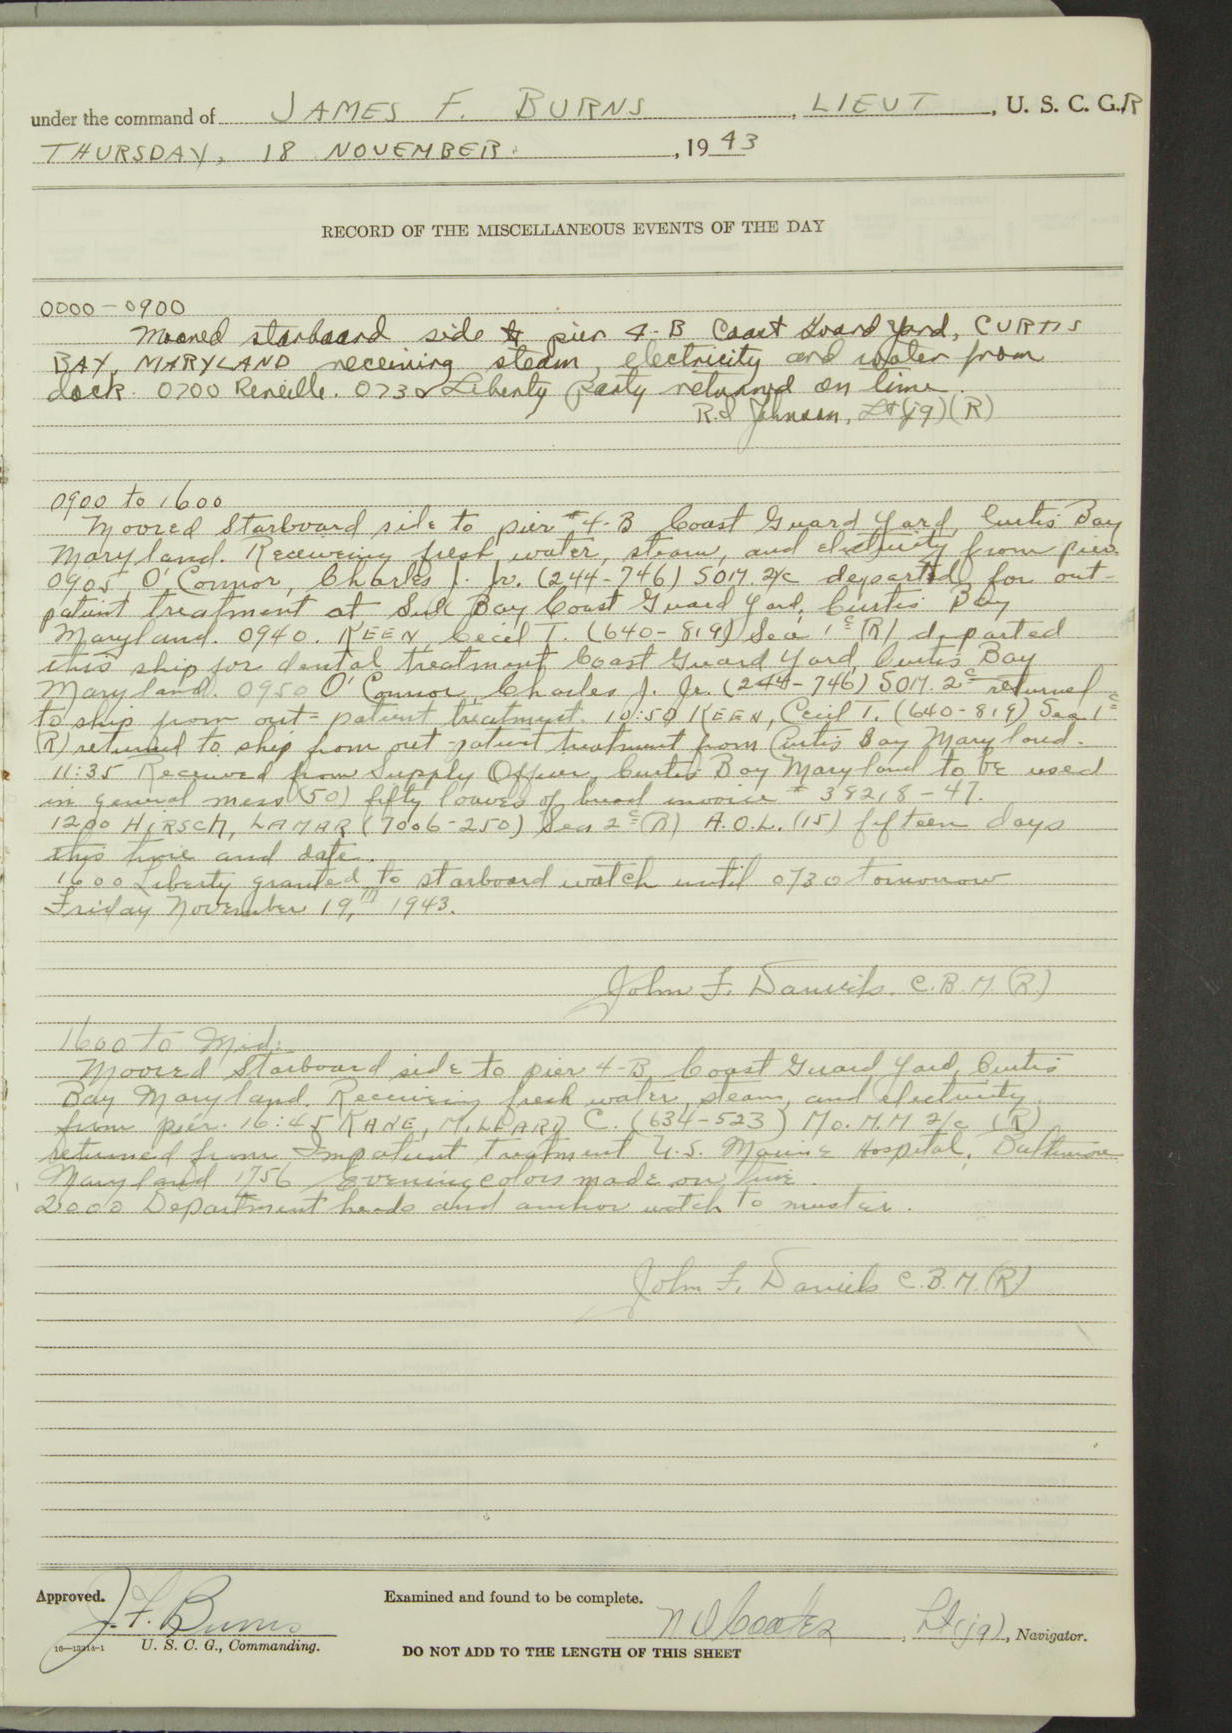 under the command of JAMES F. BURNS, LIEUT, U. S. C. G.R
THURSDAY, 18 NOVEMBER, 1943
RECORD OF THE MISCELLANEOUS EVENTS OF THE DAY
0000-0900
Moored starboard side to pier 4-B Coast Guard Yard, CURTIS
BAY, MARYLAND receiving steam, electricity and water from
dock. 0700 Reveille. 0730 Liberty party returned on time.
R.I Johnson, Lt(jg)(R)
0900 to 1600
Moored Starboard side to pier #4-B Coast Guard Yard, Curtis Bay
Maryland. Receiveing fresh water, steam, and electricity from pier.
0905 O'Connor, Charles J. Jr. (244-746) SOM. 2/c departed for out-
patient treatment at Sick Bay Coast Guard Yard, Curtis Bay
Maryland. 0940. KEEN, Cecil T. (640-819) Sea 1c (R) departed
this ship for dental treatment, Coast Guard Yard, Curtis Bay
Maryland. 0950 O'Connor, Charles J. Jr. (244-746) SOM. 2c returned
to ship from out-patient treatment. 10:50 KEEN, Cecil T. (640-819) Sea 1c
(R) returned to ship from out-patient treatment from Curtis Bay Maryland.
11:35 Received from Supply Officer, Curtis Bay Maryland to be used
in general mess (50) fifty loaves of bread invoice # 38218-47.
1200 HIRSCH, LAMAR (7006-250) Sea 2c (R) A.O.L. (15) fifteen days
this time and date.
1600 Liberty granted to starboard watch until 0730 tomorrow
Friday November 19,th 1943.
John F. Daniels. C.B.M.(R)
1600 to Mid:
Moored Starboard side to pier 4-B, Coast Guard Yard, Curtis
Bay Maryland, Receiving fresh water, steam, and electricity
from pier. 16:45 KANE, MILLARD C. (634-523) Mo.M.M 2/c (R)
returned from Inpatient treatment U.S. Marine Hospital, Baltimore
Maryland 1756 Evening colors made on time.
2000 Department heads and anchor watch to muster.
John F. Daniels C.B.M.(R)
Approved.
Examined and found to be complete.
J. F. Burns
Lt(jg), Navigator.
U. S. C. G., Commanding.
DO NOT ADD TO THE LENGTH OF THIS SHEET